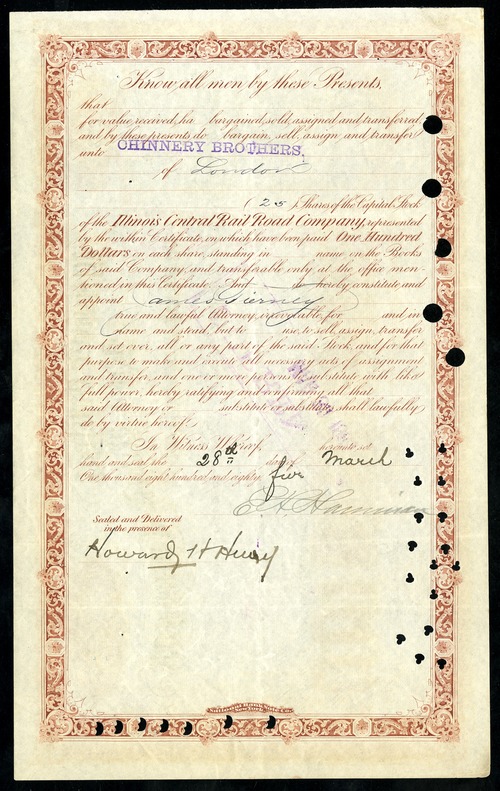 Know all men by these Presents,
that
for value received, ha bargained, sold, assigned and transferred
and by these presents do bargain, sell, assign and transfer
unto CHINNERY BROTHERS,
of London
(25) Shares of the Capital Stock
of the Illinois Central Rail Road Company, represented
by the within Certificate, on which have been paid One Hundred
Dollars on each share, standing in name on the Books
of said Company, and transferable only at the office men-
tioned in this Certificate. And do hereby constitute and
appoint James Tierney
true and lawful Attorney, irrevocable, for and in
name and stead, but to use, to sell, assign, transfer
and set over, all or any part of the said Stock, and for that
purpose to make and execute all necessary acts of assignment
and transfer, and one or more persons to substitute with like
full power, hereby ratifying and confirming all that
said Attorney or substitute or substitutes shall lawfully
do by virtue hereof.
In Witness Whereof, hereunto set
hand and seal the 28th day of March
One thousand eight hundred and eighty five
E H Harriman
Sealed and Delivered
in the presence of
Howard H Henry
National Bank Note Co.
New York